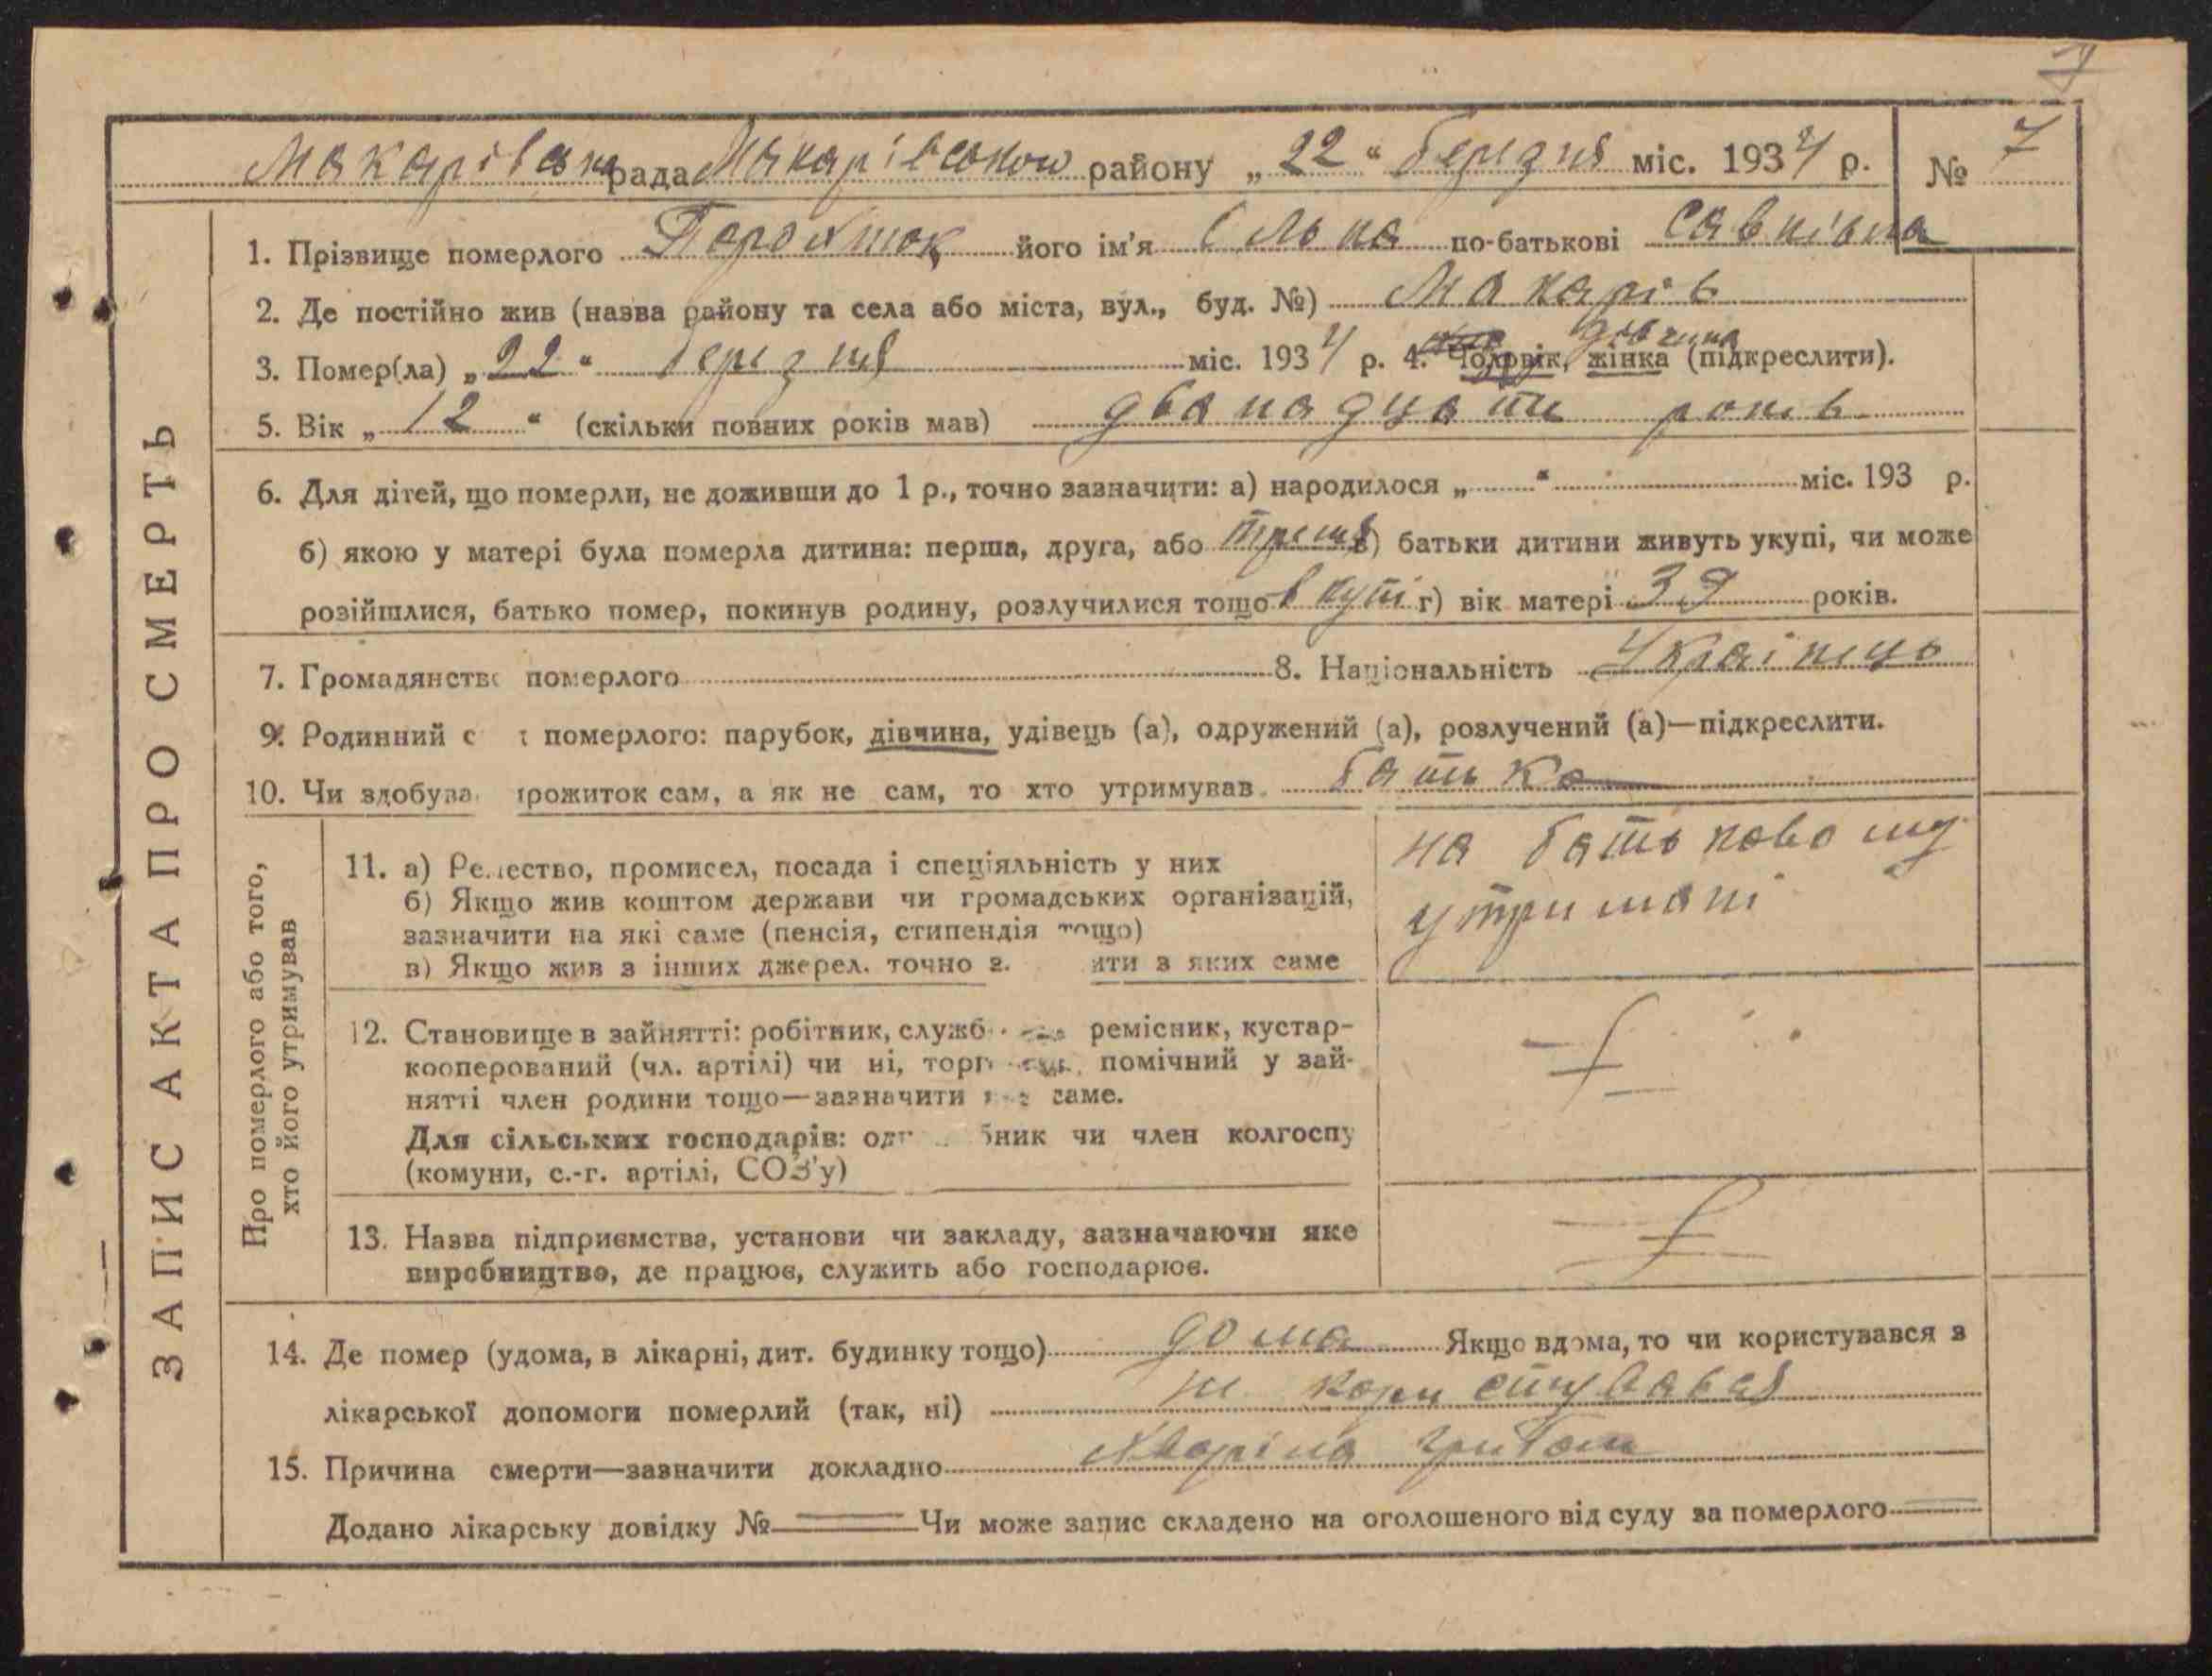 7
Макарівська рада Макарівського району „22“ березня міс. 1934 р. № 7
ЗАПИС АКТА ПРО СМЕРТЬ
1. Прізвище померлого його ім'я по-батькові Савківна
2. Де постійно жив (назва району та села або міста, вул., буд. №) Макарів
3. Помер(ла) „22“ березня міс. 1934 р. 4. Чоловік, жінка (підкреслити). дівчина
5. Вік „12“ (скільки повних років мав) дванадцяти років
6. Для дітей, що померли, не доживши до 1 р., точно зазначити: а) народилося „ “ міс. 193 р.
б) якою у матері була померла дитина: перша, друга, або третя в) батьки дитини живуть укупі, чи може
розійшлися, батько помер, покинув родину, розлучилися тощо вкупі г) вік матері 39 років.
7. Громадянство померлого 8. Національність Українець
9. Родинний с т померлого: парубок, дівчина, удівець (а), одружений (а), розлучений (а)—підкреслити.
10. Чи здобува прожиток сам, а як не сам, то хто утримував батько
Про померлого або того,
хто його утримував
11. а) Ремество, промисел, посада і спеціяльність у них
б) Якщо жив коштом держави чи громадських організацій,
зазначити на які саме (пенсія, стипендія тощо)
в) Якщо жив з інших джерел, точно з ити з яких саме
на батьковому
утримані
12. Становище в зайнятті: робітник, служб ремісник, кустар-
кооперований (чл. артілі) чи ні, торг помічний у зай-
нятті член родини тощо—зазначити саме.
Для сільських господарів: од бник чи член колгоспу
(комуни, с.-г. артілі, СОЗ'у)
13. Назва підприємства, установи чи закладу, зазначаючи яке
виробництво, де працює, служить або господарює.
14. Де помер (удома, в лікарні, дит. будинку тощо) дома Якщо вдома, то чи користувався з
лікарської допомоги померлий (так, ні) не користувався
15. Причина смерти—зазначити докладно Хваріла
Додано лікарську довідку № Чи може запис складено на оголошеного від суду за померлого